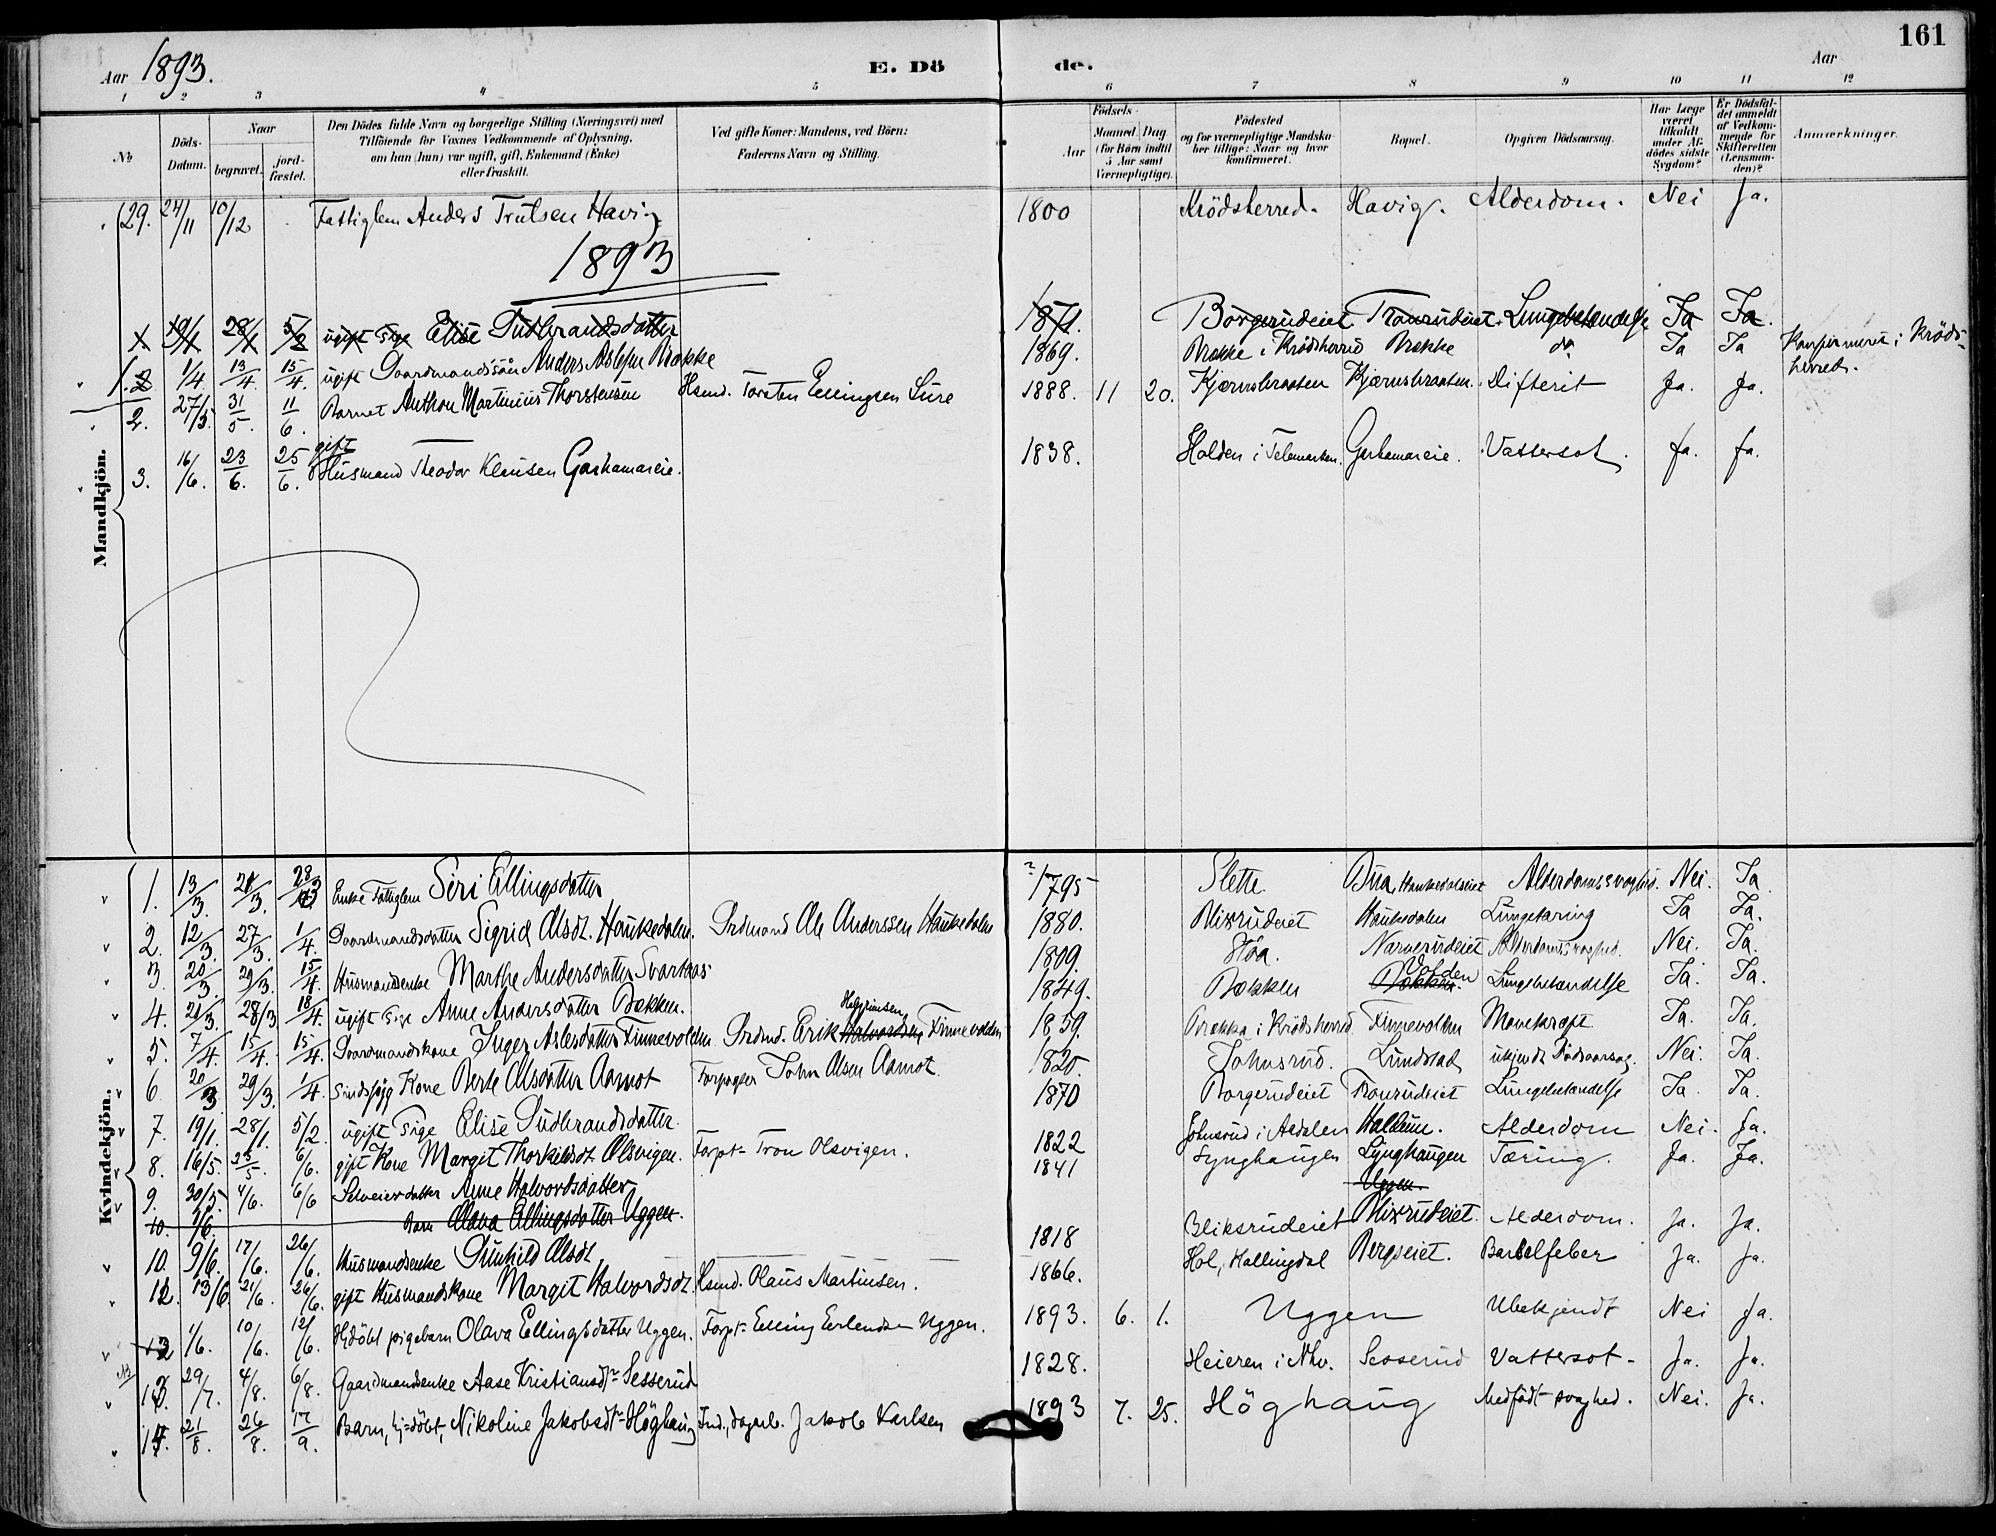 161
Aar 1893. E. Dö de. Aar
1 2 3 4 5 6 7 8 9 10 11 12
No
Döds-Datum.
Naar
begravet.
jord-fæstet.
Den Dödes fulde Navn og borgerlige Stilling (Næringsvei) med
Tilföiende for Voxnes Vedkommende af Oplysning,
om han (hun) var ugift, gift, Enkemand (Enke)
eller fraskilt.
Ved gifte Koner: Mandens, ved Börn:
Faderens Navn og Stilling.
Födsels-
Aar
Maaned Dag
(for Börn indtil
5 Aar samt
Værnepligtige).
Födested
og for værnepligtige Mandska-
ber tillige: Naar og hvor
konfirmeret.
Bopæl.
Opgiven Dödsaarsag.
Har Læge
været
tilkaldt
under Af-
dödes sidste
Sygdom?
Er Dödsfal-
det anmeldt
af Vedkom-
mende for
Skifteretten
(Lensman-
den)?
Anmærkninger.
Mandkjön.
29. 24/11 10/12 Fattiglem Anders Trulsen Havig 1800 Krödsherred. Havig. Alderdom. Nei Ja.
1893
1. 19/1 28/1 5/2 ugift Pige Elise Gudbrandsdatter 1871. Borgerudeiet Tronrudeiet Lungebetændelse Ja Ja.
1. 1/4 13/4. 15/4. ugift Gaardmandssön Anders Aslesen Brække 1869. Brække i Krödsherred Brække do Ja Ja Konfirmeret i Kröds-
herred.
2. 27/5. 31/5. 11/6. Barnet Anthon Martinius Thorstensen Hsmd. Torsten Ellingsen Lure 1888. 11 20. Kjærnsbraaten Kjærnsbraaten. Difterit Ja. Ja.
3. 16/6. 23/6. 25/6. gift Husmand Theodor Klausen Garhamareie. 1838. Holden i Telemarken. Garhamareie. Vattersot. Ja. Ja.
Kvindekjön.
1. 13/3. 21/3. 28/3 Enke Fattiglem Siri Ellingsdatter 1795 Slette Bua, Haukedalseiet Alderdomssvaghed. Nei. Ja
2. 12/3. 27/3. 1/4. Gaardmandsdatter Sigrid Olsdt. Haukedalen. Grdmand Ole Anderssen Haukedalen 1880. Blixrudeiet Haukedalen Lungetæring Ja Ja.
3. 20/3 29/3. 15/4. Husmandsenke Marthe Andersdatter Svartaas 1809. Höa. Narverudeiet Alderdomssvaghed. Nei. Ja.
4. 21/3. 28/3 18/4. ugift Pige Anne Andersdatter Bækken. 1849. Bækken Bækken. Lungebetændelse Ja. Ja.
5. 7/4. 15/4. 15/4. Gaardmandskone Inger Aslesdatter Finnevolden Grdmd. Erik Halvorsen Helgrimsen Finnevolden 1859. Brække i Krödsherred Finnevolden Mavekræft Ja. Ja.
6. 20/3 29/3. 1/4. Sindssyg Kone Berte Olsdatter Aamot Forpagter John Olsen Aamot. 1820. Johnsrud. Lundstad ukjendt Dödsaarsag. Nei. Ja.
7. 19/1. 28/1. 5/2. ugift Pige Elise Gudbrandsdatter 1870 Borgerudeiet Tronrudeiet Lungebetændelse Ja. Ja.
8. 16/5. 25/5. 6/6. gift Kone Margit Thorkildsdt. Olsvigen. Forpt. Tron Olsvigen. 1822 Johnsrud i Aadalen Hallum. Alderdom Nei. Ja.
9. 30/5. 4/6. 6/6 Selveierdatter Anne Halvorsdatter 1841 Lynghaugen Lynghaugen Tæring. Ja. Ja.
10. 1/6. Barn Olava Ellingsdatter Uggen. Uggen.
10. 9/6. 17/6. 26/6. Husmandsenke Gunhild Olsdt. 1818 Bliksrudeiet Blixrudeiet. Alderdom. Ja. Ja.
11. 13/6. 21/6. 26/6. gift Husmandskone Margit Halvordsdt. Hsmd. Olaus Martinsen. 1866. Hol, Hallingdal Bergseiet. Barselfeber Ja. Ja.
12 1/6. 10/6. 12/6. Hjdöbt pigebarn Olava Ellingsdatter Uggen. Forpt. Elling Erlendsen Uggen. 1893. 6. 1. Uggen Ubekjendt Nei Ja.
NB
13. 29/7. 4/8. 6/8. Gaardmandsenke Aase Kristiansdtr Sesserud 1828. Heieren i Nhv. Sesserud Vattersot. Ja. Ja.
14. 21/8. 26/8. 17/9. Barn, hj=döbt, Nikoline Jakobsdt. Höghaug Ind., dagarb. Jakob Karlsen 1893 7. 25. Höghaug Medfödt svaghed. Nei. Ja.